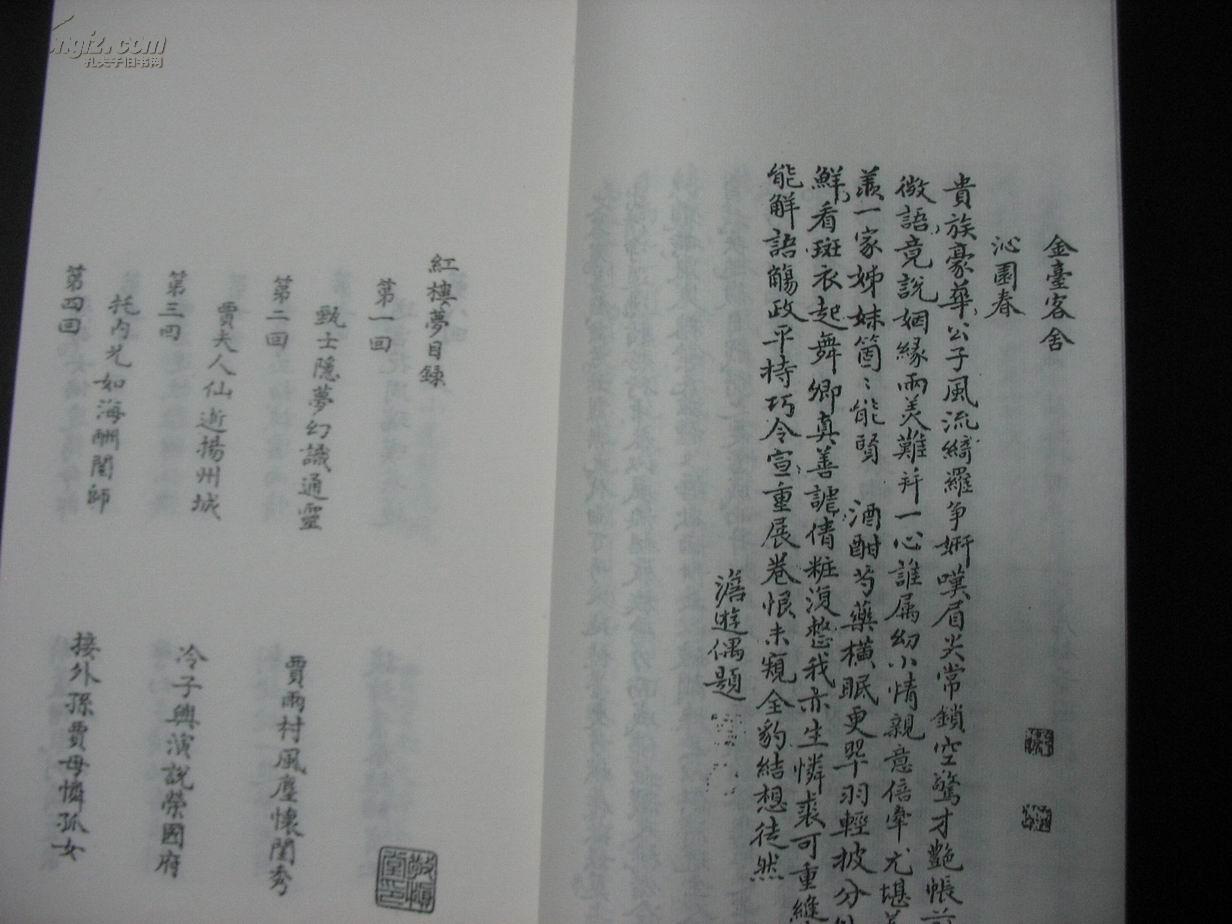 金臺客舍
沁園春
貴族豪華公子風流綺羅爭妍嘆眉尖常鎖空驚才艷帳前
微語竟說姻緣兩美難并一心誰屬幼小情親意倍牽尤堪羨
羨一家姊妹箇〻能賢　酒酣芍藥橫眠更翠羽輕披分外
鮮看斑衣起舞卿真善謔倩粧復整我亦生憐裘可重縫
能解語觴政平持巧令宣重展卷恨未窺全豹結想徒然
澹遊偶題
紅樓夢目錄
第一回
甄士隱夢幻識通靈　賈雨村風塵懷閨秀
第二回
賈夫人仙逝揚州城　冷子興演說榮國府
第三回
托內兄如海酬閨師　接外孫賈母憐孤女
第四回
孔夫子旧书网